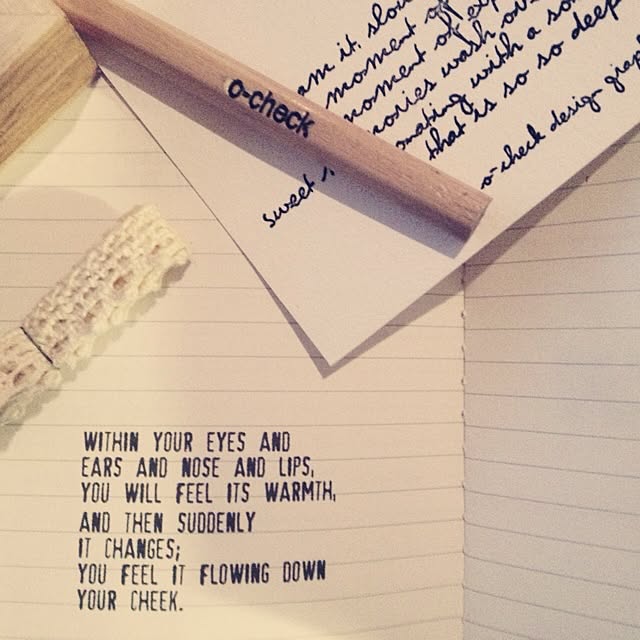 am it. slow
moment of
moment of exp
ories wash ov
omating with a so
that is so so deep
sweet
o-check design grap
o-check
WITHIN YOUR EYES AND
EARS AND NOSE AND LIPS,
YOU WILL FEEL ITS WARMTH,
AND THEN SUDDENLY
IT CHANGES;
YOU FEEL IT FLOWING DOWN
YOUR CHEEK.